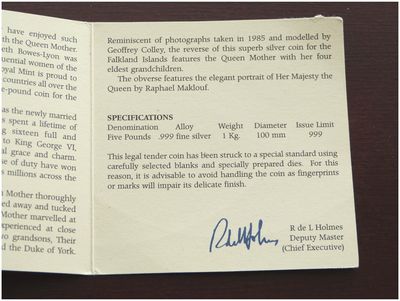 have enjoyed such
th the Queen Mother.
eth Bowes-Lyon was
quential women of the
oyal Mint is proud to
countries all over the
e-pound coin for the
as the newly married
s spent a lifetime of
g sixteen full and
to King George VI,
al grace and charm.
se of duty have won
s millions across the
n Mother thoroughly
ed away and tucked
Mother marvelled at
experienced at close
wo grandsons, Their
d the Duke of York.
Reminiscent of photographs taken in 1985 and modelled by
Geoffrey Colley, the reverse of this superb silver coin for the
Falkland Islands features the Queen Mother with her four
eldest grandchildren.
The obverse features the elegant portrait of Her Majesty the
Queen by Raphael Maklouf.
SPECIFICATIONS
Denomination Alloy Weight Diameter Issue Limit
Five Pounds .999 fine silver 1 Kg. 100 mm 999
This legal tender coin has been struck to a special standard using
carefully selected blanks and specially prepared dies. For this
reason, it is advisable to avoid handling the coin as fingerprints
or marks will impair its delicate finish.
R de L Holmes
R de L Holmes
Deputy Master
(Chief Executive)